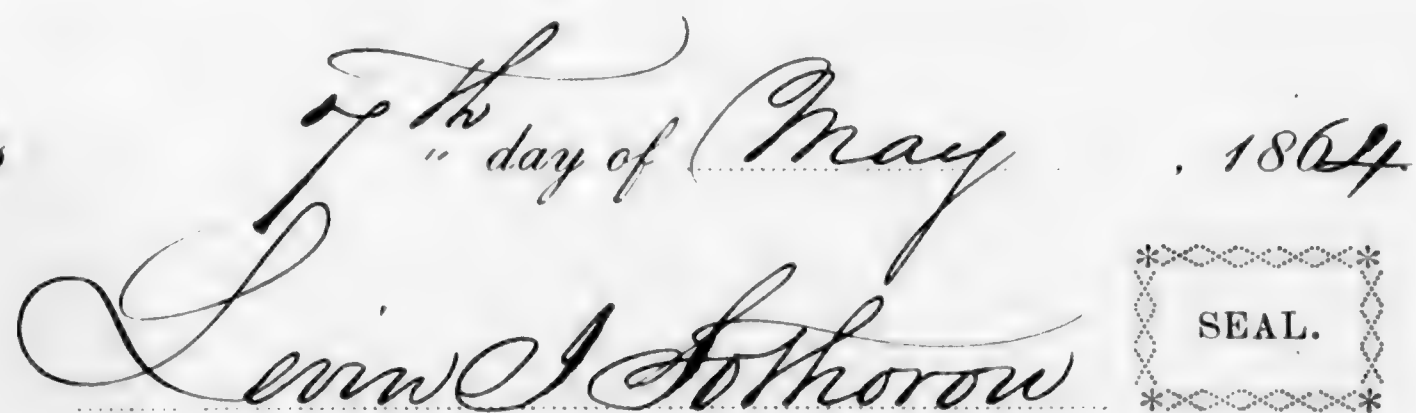 7th " day of May , 1864
Levin J Sothoron
SEAL.